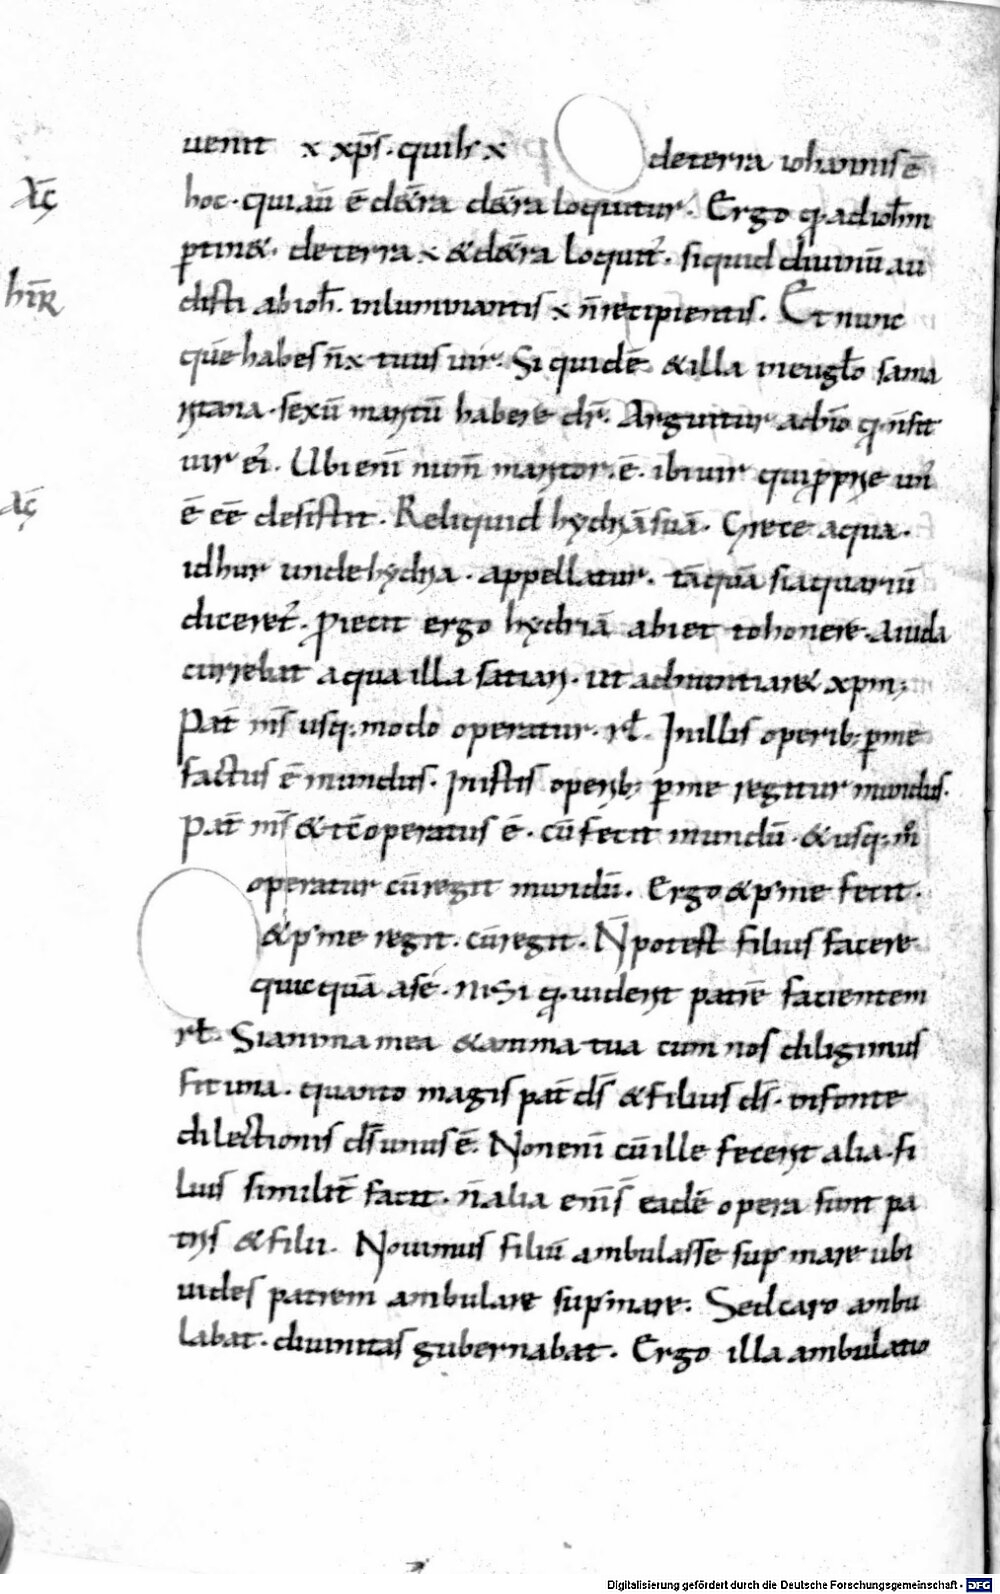 uenit x xp̄s. qui hx de terra iohannis ē
AḠ
hoc. qui aū ē de t̄ra de t̄ra loquitur. Ergo q̄ ad ioh̄m
ptin&. de terra x & de t̄ra loquit̄. siquid diuinū au
hīR
disti ab ioh̄. inluminantis x n̄ recipientis. Et nunc
quē habes n̄x tuus uir. Si quidē & illa in eugl̄o sama
ritana. sexū maritū habere dr̄. Arguitur a dn̄o q̄ n̄ sit
uir ei. Ubi enī num̄ maritor. ē. ibi uir qui pprie uir
AḠ
ē eē desistit. Reliquid hydriā suā. Grece aqua.
id hur unde hydria. appellatur. tāquā si aquariū
diceret̄. Proiecit ergo hydriā abiet to honere. auida
currebat aqua illa satiari. ut adnuntiar& xpm;
Pat̄ m̄s usq; modo operatur. rl̄. In illis operib; p me
factus ē mundus. In istis operib; p me regitur mundus.
Pat̄ m̄s & tc̄ operatus ē. cū fecit mundū. & usq; m̊
operatur cū regit mundū. Ergo & p me fecit.
& p me regit. cū regit. N̄ potest filius facere
quicquā a se. nisi q̄ uiderit patrē facientem
rl̄. Si anima mea & anima tua cum nos diligimus
fit una. quanto magis pat̄ ds̄ & filius ds̄. in fonte
dilectionis ds̄ unus ē. Non enī cū ille fecerit alia. fi
lius similit̄ facit. n̄ alia enī s̄ eadē opera sunt pa
tris & filii. Nouimus filiū ambulasse sup mare ubi
uides patrem ambulare sup mare. Sed caro ambu
labat. diuinitas gubernabat. Ergo illa ambulatio
Digitalisierung gefördert durch die Deutsche Forschungsgemeinschaft - DFG